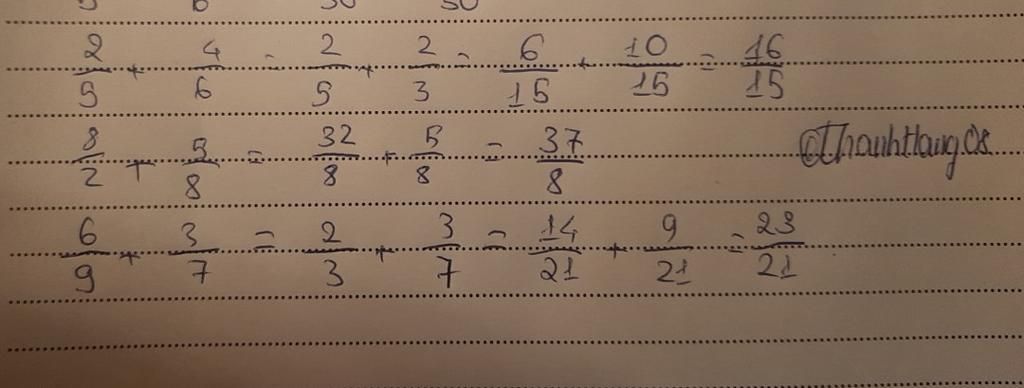 2/5 + 4/6 = 2/5 + 2/3 = 6/15 + 10/15 = 16/15
8/2 + 5/8 = 32/8 + 5/8 = 37/8
©Thanhhang08
6/9 + 3/7 = 2/3 + 3/7 = 14/21 + 9/21 = 23/21